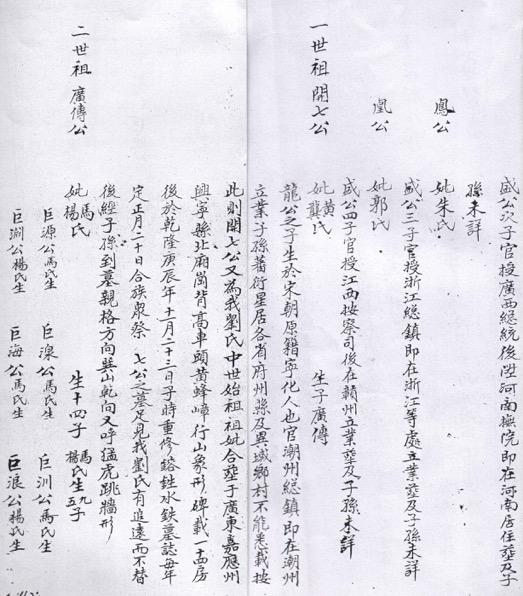 盛公次子官授廣西總統後陞河南撫院即在河南居住塟及子
孫未詳
鳳公 妣朱氏
盛公三子官授浙江總鎮即在浙江等處立業塟及子孫未詳
凰公 妣郭氏
盛公四子官授江西按察司後在贛州立業塟及子孫未詳
一世祖開七公 妣黃龔氏 生子廣傳
龍公之子生於宋朝原籍寧化人也官潮州總鎮即在潮州
立業子孫蕃衍星居各省府州縣及異域鄉村不能悉載按
此則開七公又為我劉氏中世始祖祖妣合塟于廣東嘉應州
興寧縣北廂崗背高車頭黃蜂嶂行山象形碑載一十四房
後於乾隆庚辰年十一月二十三日子時重修鎔鉎水鉄墓誌每年
定正月二十日合族眾祭 七公之墓足見我劉氏有追遠而不替
後經子孫到墓親格方向巽山乾向又呼猛虎跳牆形
二世祖廣傳公 妣馬楊氏 生十四子 馬楊氏生九五子
巨源公馬氏生 巨湶公馬氏生 巨汌公馬氏生
巨淵公楊氏生 巨海公馬氏生 巨浪公楊氏生